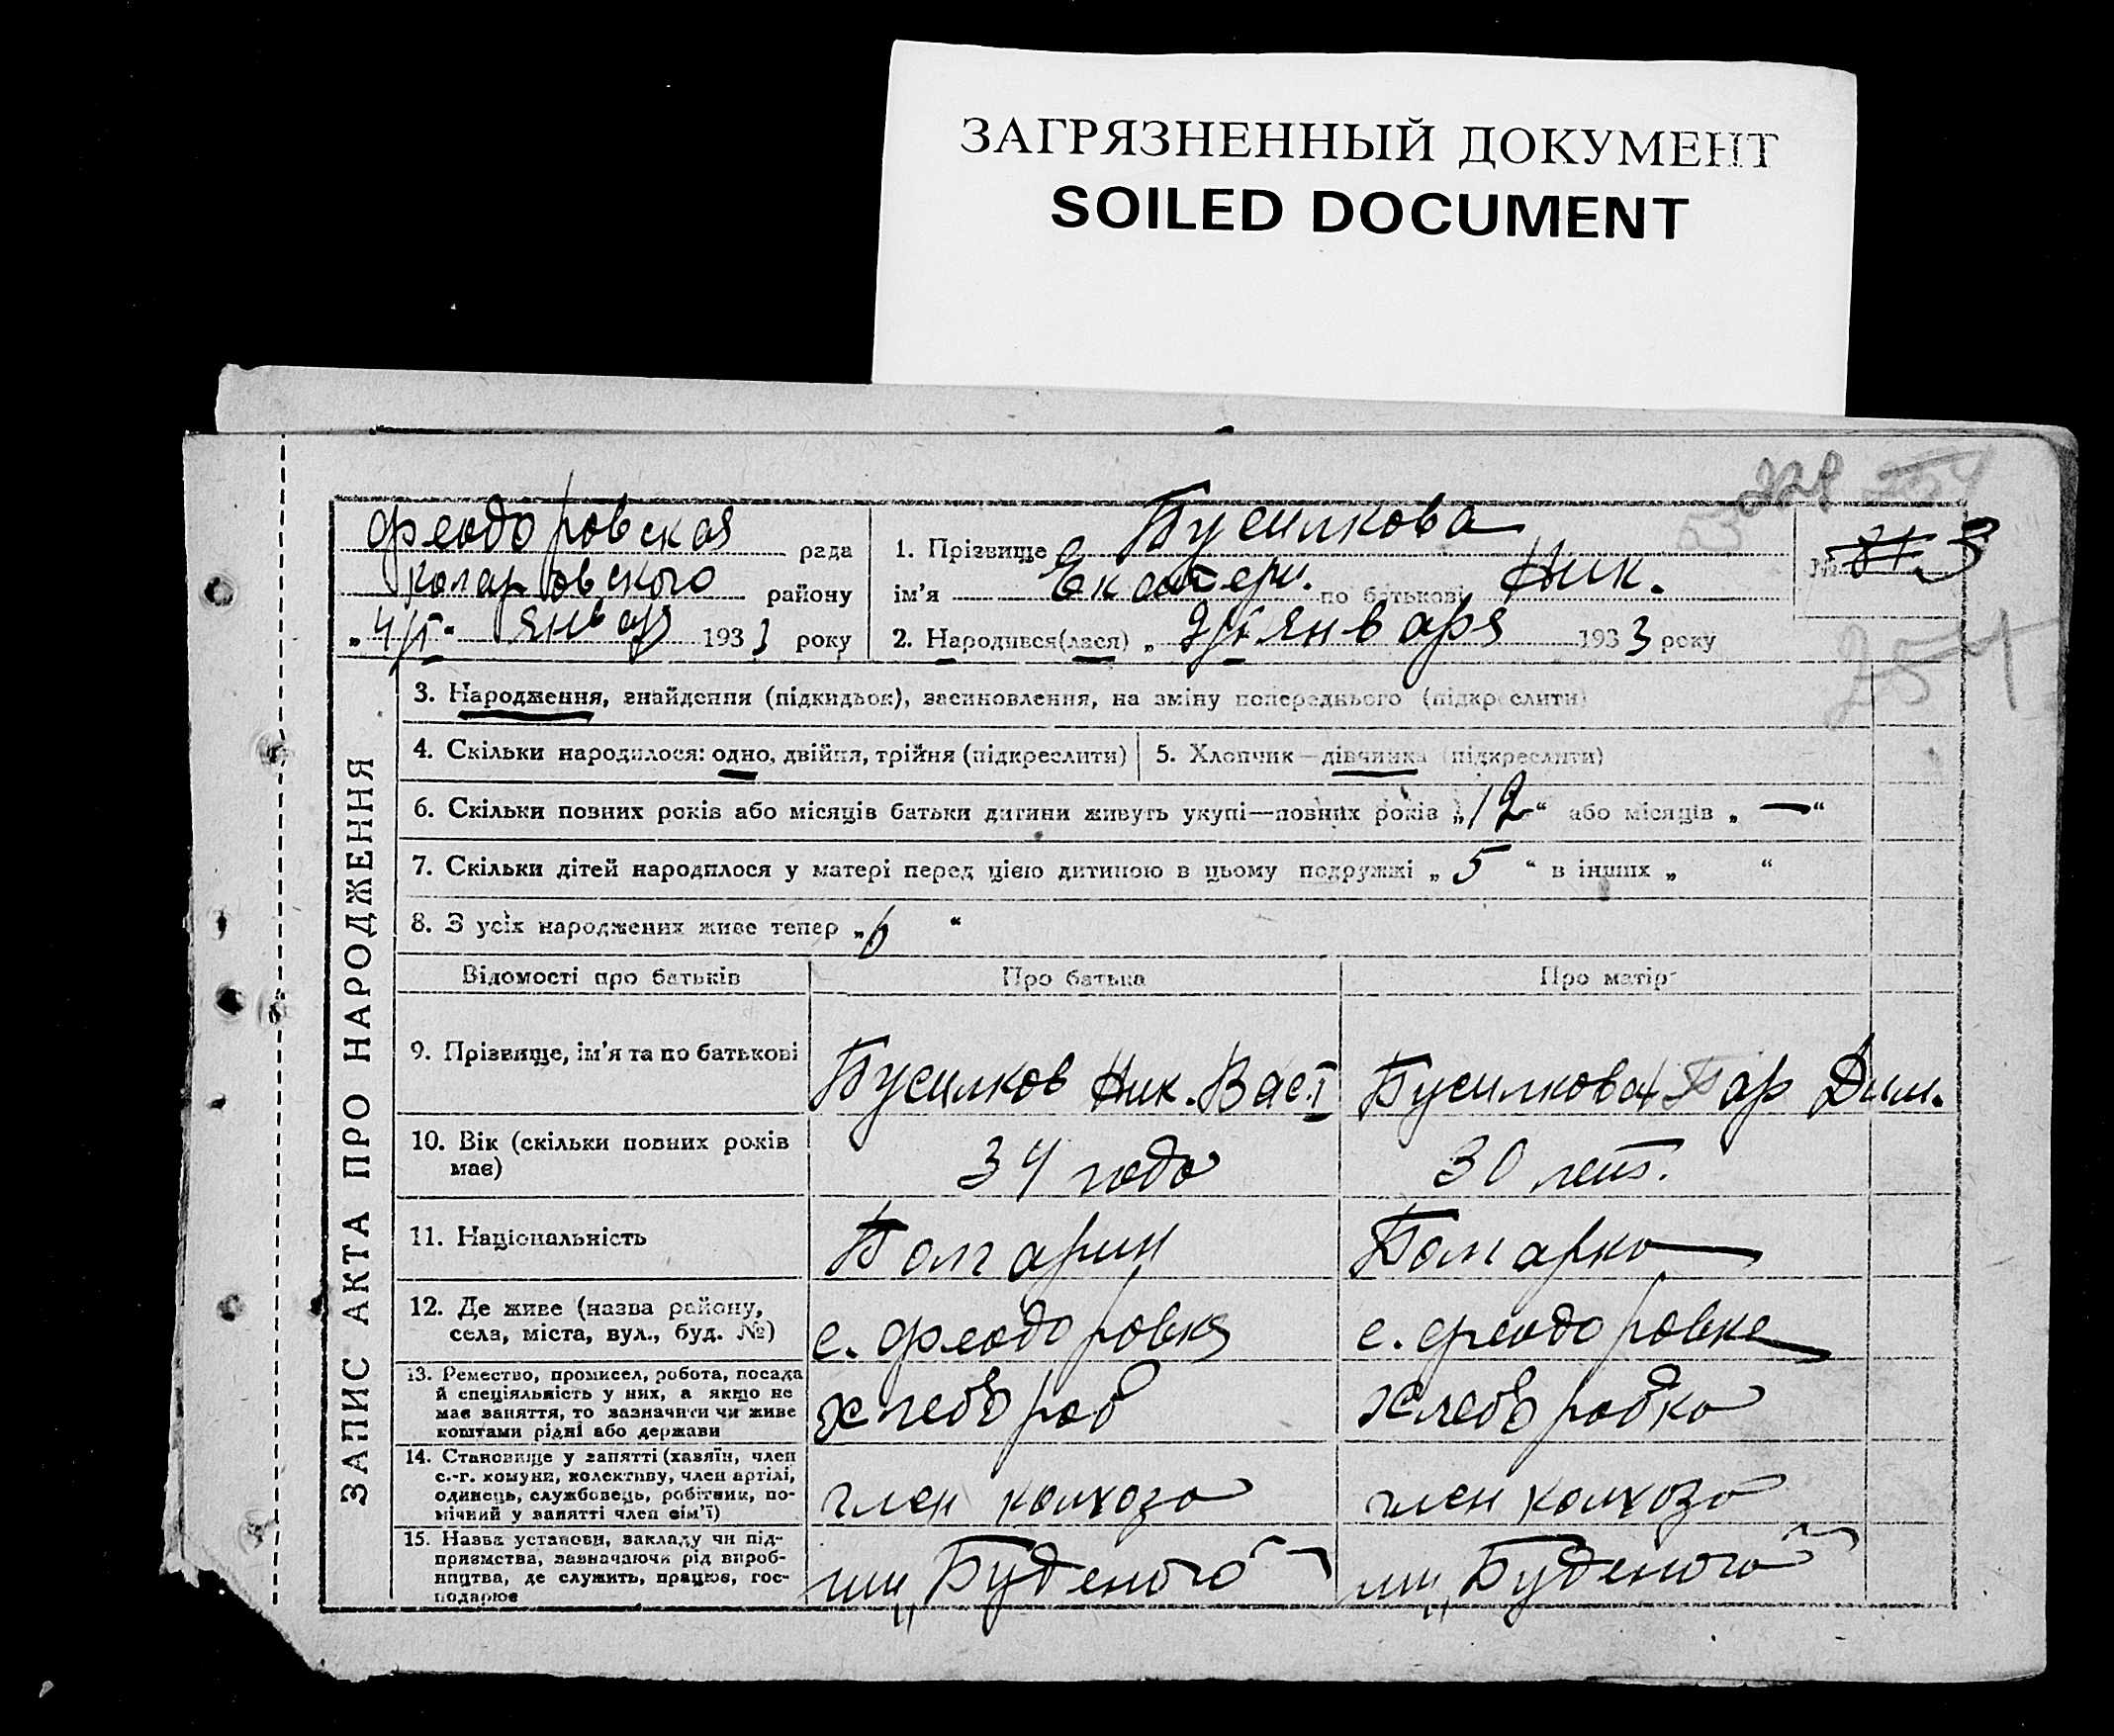 ЗАГРЯЗНЕННЫЙ ДОКУМЕНТ
SOILED DOCUMENT
Феодоровская рада
Коларовского району
„4/I“ января 1933 року
1. Прізвище Бусилкова
ім’я Екатери. по батькові Ник.
2. Народився(лася) „2/I января 1933 року
№ 3
254
ЗАПИС АКТА ПРО НАРОДЖЕННЯ
3. Народження, знайдення (підкидьок), засиновлення, на зміну попереднього (підкреслити)
4. Скільки народилося: одно, двійня, трійня (підкреслити) 5. Хлопчик—дівчинка (підкреслити)
6. Скільки повних років або місяців батьки дитини живуть укупі—повних років „12“ або місяців „—“
7. Скільки дітей народилося у матері перед цією дитиною в цьому подружжі „5“ в інших „ “
8. З усіх народжених живе тепер „6 “
Відомості про батьків Про батька Про матір
9. Прізвище, ім’я та по батькові Бусилков Ник. Вас. Бусилкова Вар Дим.
10. Вік (скільки повних років має) 34 года 30 лет.
11. Національність Болгарин Болгарка
12. Де живе (назва району, села, міста, вул., буд. №) с. Феодоровка с. Феодоровке
13. Ремество, промисел, робота, посада й спеціяльність у них, а якщо не має заняття, то зазначити чи живе коштами рідні або держави хлебороб хлеборобка
14. Становище у занятті (хазяїн, член с.-г. комуни, колективу, член артілі, одинець, службовець, робітник, помічний у занятті член сім’ї) член колхоза член колхоза
15. Назва установи, закладу чи підприємства, зазначаючи рід виробництва, де служить, працює, господарює им „Буденого“ им „Буденого“